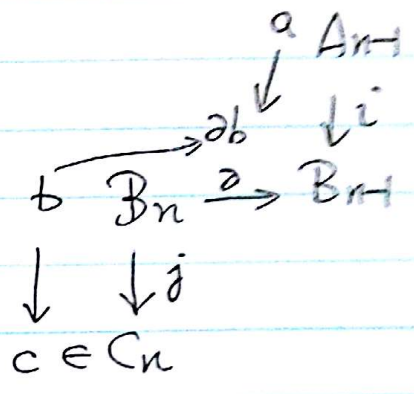 a A_{n-1}
↓ ↓ i
∂b
b B_n ∂→ B_{n-1}
↓ ↓ j
c ∈ C_n